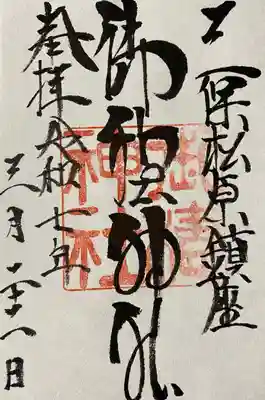 三保松原鎮座
御穂神社
奉拝 令和七年
三月二十一日
御穂
神社